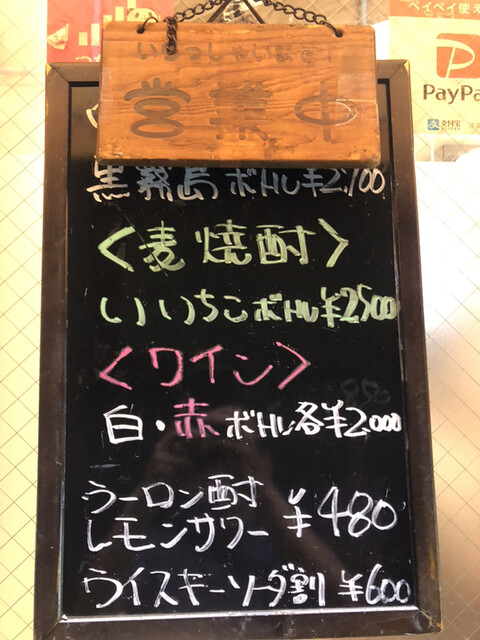 ペイペイ使え
PayPa
支付宝
いらっしゃいます!
営業中
黒霧島ボトル¥2,100
〈麦焼酎〉
いいちこボトル¥2500
〈ワイン〉
白・赤ボトル各¥2,000
ウーロン酎
レモンサワー ¥480
ウイスキーソーダ割 ¥600